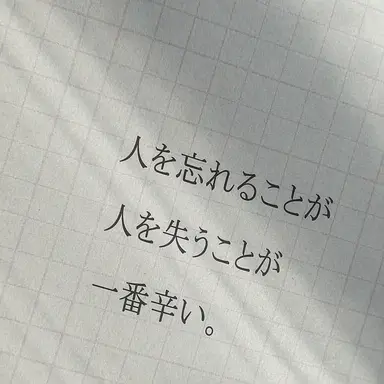 人を忘れることが
人を失うことが
一番辛い。